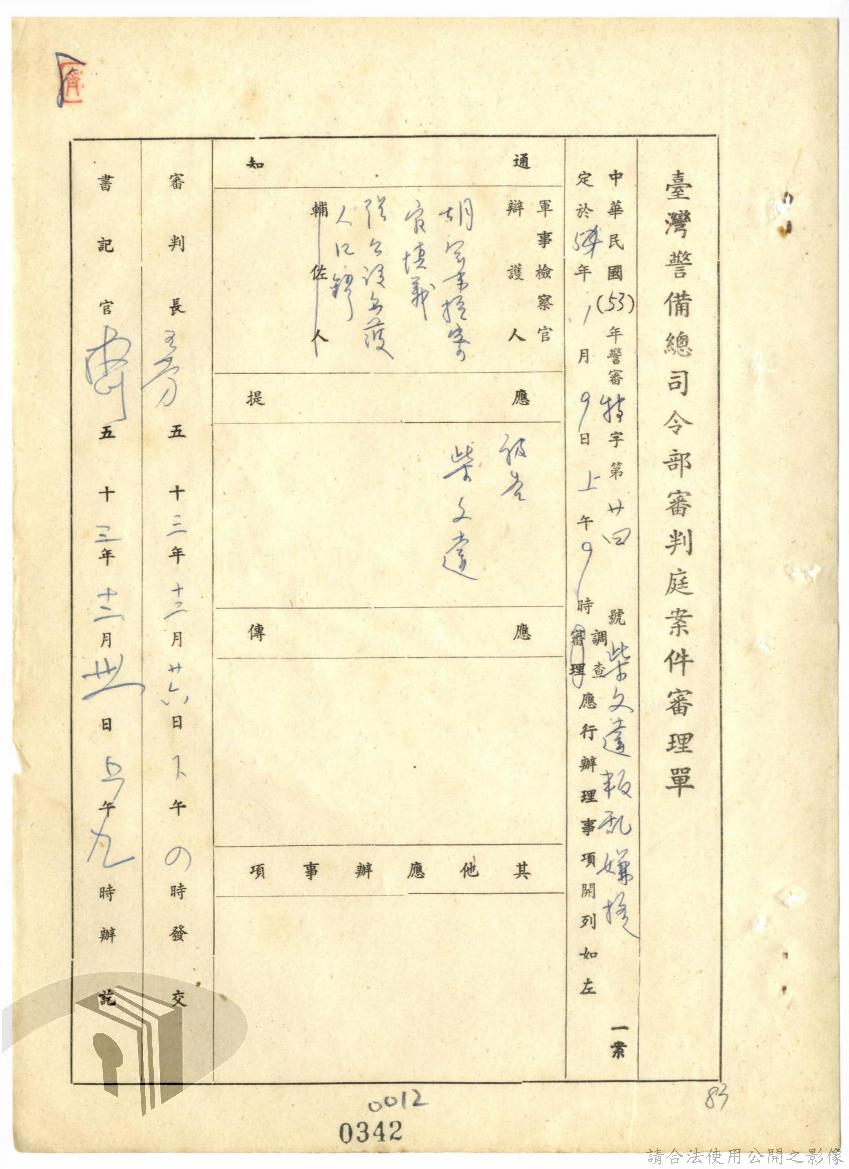 臺灣警備總司令部審判庭案件審理單
中華民國(53)年警審特字第廿四號柴文達叛亂嫌疑一案
定於54年1月9日上午9時調查審理應行辦理事項開列如左
通知
軍事檢察官
辯護人
輔佐人
應提
被告
柴文達
應傳
其他應辦事項
審判長
五十三年十二月廿六日下午 時發交
書記官
五十三年十二月 日上午九時辦訖
0012
0342
83
請合法使用公開之影像